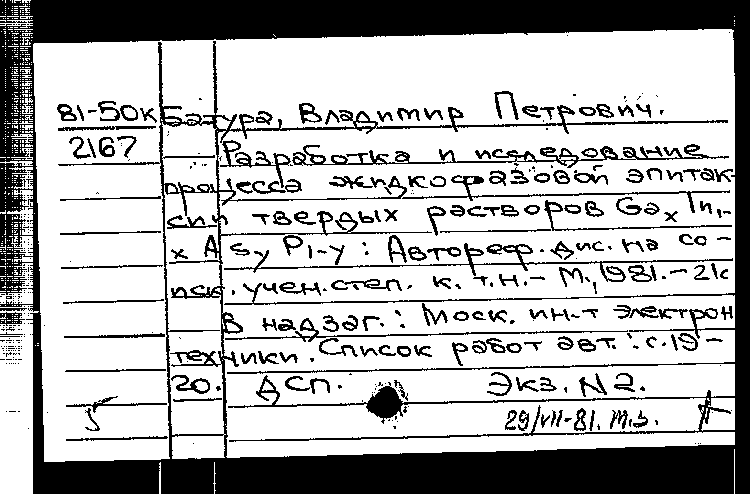 81-50к Батура, Владимир Петрович.
2167 Разработка и исследование
процесса жидкофазовой эпитак-
сии твердых растворов GaxIn1-
x Asy P1-y : Автореф. дис. на со-
иск. учен. степ. к. т.н. – М., 1981. – 21с
В надзаг.: Моск. ин-т электрон
техники. Список работ авт.: с.19-
20. ДСП. Экз. N2.
29/VII-81. М.З.